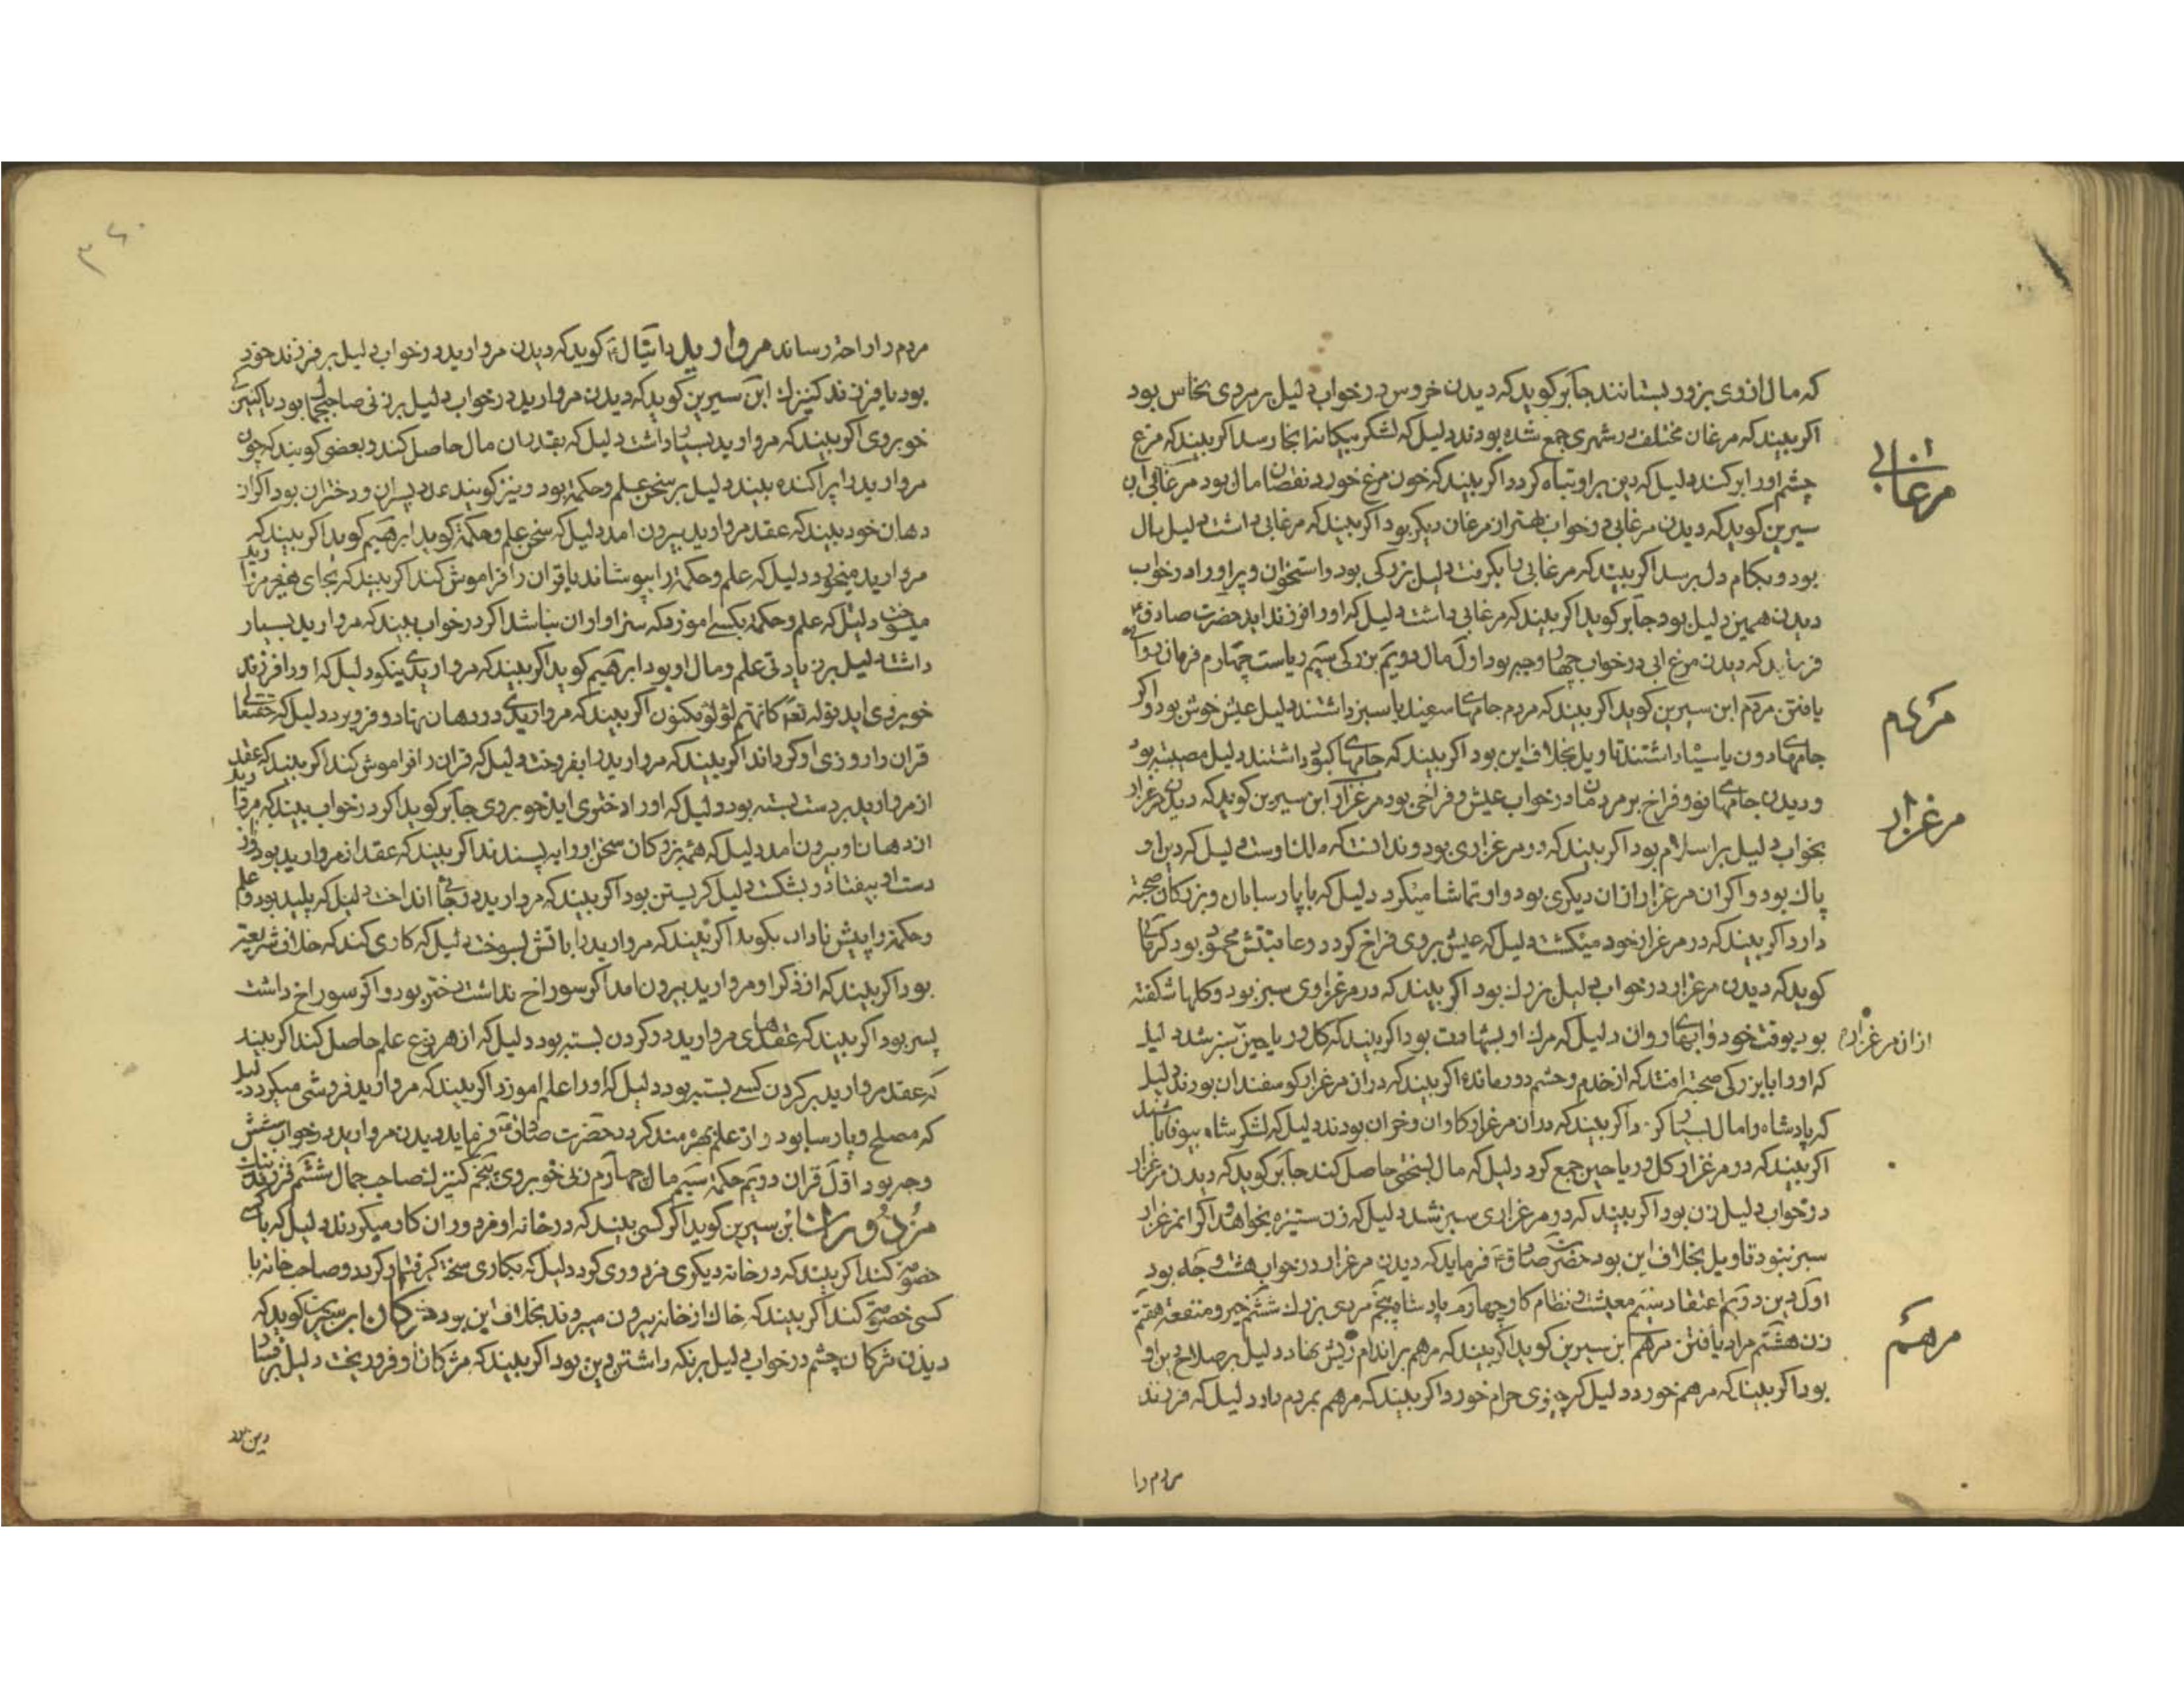 که مال ازوی بزور بستانند جابر کوید که دیدن خروس در خواب دلیل بر مردی نخاس بود
اکر بیند که مرغان مختلف در شهری جمع شده بودند دلیل که لشکر بیکانه انجا رسد اکر بیند که مرغ
چشم او را برکند دلیل که دین بر او تباه کردد اکر بیند که خون مرغ خورد نقصان مال بود مرغابی ابن
مرغابی
سیرین کوید که دیدن مرغابی در خواب بهتر از مرغان دیکر بود اکر بیند که مرغابی داشت دلیل مال
بود و بکام دل برسد اکر بیند که مرغابی را بکرفت دلیل بزرکی بود و استخوان و پر او را در خواب
دیدن همین دلیل بود جابر کوید اکر بیند که مرغابی داشت دلیل که او را فرزند اید حضرت صادق
فرماید که دیدن مرغ ابی در خواب چهار وجه بود اول مال دویم بزرکی سیم ریاست چهارم فرمان روائی
یافتن مردم ابن سیرین کوید اکر بیند که مردم جامهای سفید یا سبز داشتند دلیل عیش خوش بود و اکر
مردم
جامهای دون یا سیاه داشتند تاویل بخلاف این بود اکر بیند که جامهای کبود داشتند دلیل مصیبت بود
و دیدن جامهای نو و فراخ بر مردمان در خواب عیش و فراخی بود مرغزار ابن سیرین کوید که دیدن مرغزار
مرغزار
بخواب دلیل بر اسلام بود اکر بیند که در مرغزاری بود و ندانست که ملک اوست دلیل که دین او
پاک بود و اکر ان مرغزار ازان دیکری بود و او تماشا میکرد دلیل که با پارسایان و بزرکان صحبت
دارد اکر بیند که در مرغزار خود میکشت دلیل که عیش بروی فراخ کردد و عاقبتش محمود بود کرمانی
کوید که دیدن مرغزار در خواب دلیل بزرک بود اکر بیند که در مرغزاری سبز بود و کلها شکفته
بود بوقت خود و ابهای روان دلیل که مرک او بشهادت بود اکر بیند که کل و ریاحین سبز شد دلیل
ازان مرغزار
که او را با بزرکی صحبت افتد که از خدم و حشم دور مانده اکر بیند که دران مرغزار کوسفندان بودند دلیل
که پادشاه را مال بسیار کرد اکر بیند که دران مرغزار کاوان و خران بودند دلیل که لشکر شاه بیوفا باشند
اکر بیند که در مرغزار کل و ریاحین جمع کرد دلیل که مال بسختی حاصل کند جابر کوید که دیدن مرغزار
در خواب دلیل زن بود اکر بیند که در مرغزاری سبز شد دلیل که زن ستیزه بخواهد و اکر ان مرغزار
سبز نبود تاویل بخلاف این بود حضرت صادق فرماید که دیدن مرغزار در خواب هشت وجه بود
اول دین دویم اعتقاد سیم معیشت و نظام کار چهارم پادشاه پنجم مردی بزرک ششم خیر و منفعت هفتم
زن هشتم مراد یافتن مرهم ابن سیرین کوید اکر بیند که مرهم بر اندام ریش نهاد دلیل بر صلاح دین او
مرهم
بود اکر بیند که مرهم خورد دلیل که چیزی حرام خورد اکر بیند که مرهم بمردم داد دلیل که فرزند
مردم را
۳۶۰
مردم را راحت رساند مروارید دانیال کوید که دیدن مروارید در خواب دلیل بر فرزند خود
بود یا فرزند کنیزک ابن سیرین کوید که دیدن مروارید در خواب دلیل بر زنی صاحب جمال بود یا کنیزکی
خوبروی اکر بیند که مروارید بسیار داشت دلیل که بقدر ان مال حاصل کند و بعضی کویند که چون
مروارید را پراکنده بیند دلیل بر سخن علم و حکمة بود و نیز کویند عدد پسران و دختران بود اکر از
دهان خود بیند که عقد مروارید بیرون امد دلیل که سخن علم و حکمة کوید ابرهیم کوید اکر بیند که
مروارید میخورد دلیل که علم و حکمة را بپوشاند یا قران را فراموش کند اکر بیند که بجای هیزم مروارید
میسوخت دلیل که علم و حکمة بکسی اموزد که سزاوار ان نباشد اکر در خواب بیند که مروارید بسیار
داشت دلیل بر زیادتی علم و مال او بود ابرهیم کوید اکر بیند که مرواریدی نیکو دلیل که او را فرزند
خوبروی اید قوله تعم کانهم لؤلؤ مکنون اکر بیند که مرواریدی در دهان نهاد و فرو برد دلیل که حقتعالی
قران را روزی او کرداند اکر بیند که مروارید را بفروخت دلیل که قران را فراموش کند اکر بیند که عقد
از مروارید بر دست بسته بود دلیل که او را دختری اید خوبروی جابر کوید اکر در خواب بیند که مروارید
از دهان او بیرون امد دلیل که همه بزرکان سخن او را به پسندند اکر بیند که عقد از مروارید بود و از
دست او بیفتاد و بشکست دلیل کریستن بود اکر بیند که مروارید در جائی انداخت دلیل که پلید بود و علم
و حکمة را پیش نادان بکوید اکر بیند که مروارید را باتش بسوخت دلیل که کاری کند که خلاف شریعت
بود اکر بیند که از ذکر او مروارید بیرون امد اکر سوراخ نداشت دختر بود و اکر سوراخ داشت
پسر بود اکر بیند که عقدهای مروارید در کردن بسته بود دلیل که از هر نوع علم حاصل کند اکر بیند
که عقد مروارید بر کردن کسی بسته بود دلیل که او را علم اموزد اکر بیند که مروارید فروشی میکرد دلیل
که مصلح و پارسا بود و از علم بهره مند کردد حضرت صادق فرماید دیدن مروارید در خواب شش
وجه بود اول قران دویم حکمة سیم مال چهارم زنی خوبروی پنجم کنیزک صاحب جمال ششم فرزند
مزدوران ابن سیرین کوید اکر کسی بیند که در خانه او مزدوران کار میکردند دلیل که با کسی
خصومت کند اکر بیند که در خانه دیکری مزدوری کرد دلیل که بکاری سخت کرفتار کردد و صاحب خانه با
کسی خصومت کند اکر بیند که خاک از خانه بیرون میبردند بخلاف این بود مژکان ابن سیرین کوید که
دیدن مژکان چشم در خواب دلیل بر نکه داشتن دین بود اکر بیند که مژکان او فرو ریخت دلیل بر فساد
دین بود